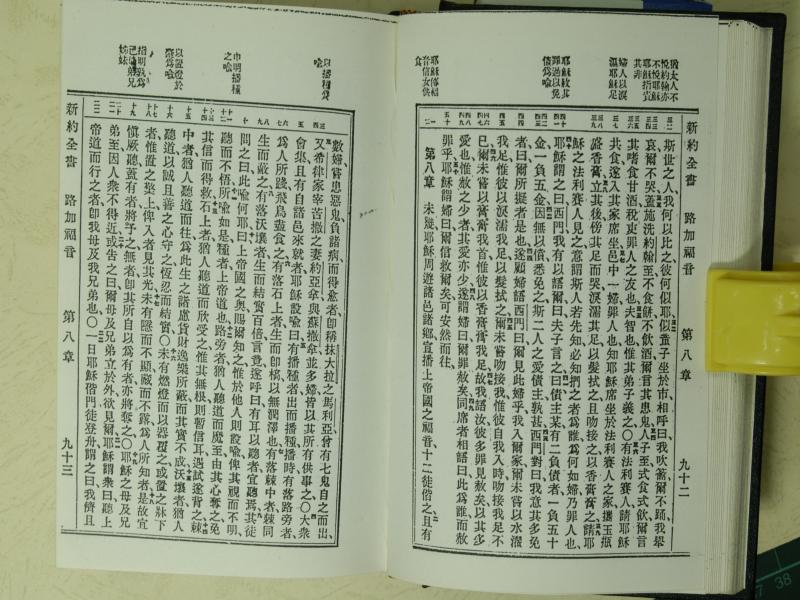 猶太人不
悅約翰亦
不悅耶穌
耶穌指責
其非
婦人以淚
濕耶穌足
耶穌赦其
罪過以免
債爲喻
耶穌傳福
音信女供
食
新約全書 路加福音 第八章 九十二
斯世之人、我何以比之、彼何似耶、似童子坐於市、相呼曰、我吹籥、爾不踊、我舉
哀、爾不哭、蓋施洗約翰至、不食餅、不飲酒、爾言其患鬼、人子至、式食式飲、爾言
其嗜食甘酒、稅吏罪人之友也、夫智也、惟其弟子義之、〇有法利賽人、請耶穌
共食、遂入其家席坐、邑中一婦、罪人也、知耶穌席坐於法利賽人之家、攜玉瓶
盛香膏、立其後、傍其足而哭、淚濡其足、以髮拭之、且吻接之、以香膏膏之、請耶
穌之法利賽人見之、意謂、斯人若先知、必知捫之者爲誰、爲何如婦、乃罪人也、
耶穌謂之曰、西門、我有以語爾、曰、夫子言之、曰、債主某、有二負債者、一負五十
金、一負五金、因無以償、悉免之、斯二人之愛債主孰甚、西門對曰、我意其多免
者、曰、爾所擬者是也、遂顧婦、語西門曰、爾見此婦乎、我入爾家、爾未嘗以水濯
我足、惟彼以淚濡我足、以髮拭之、爾未嘗吻接我、惟彼自我入時、吻接我足不
已、爾未嘗以膏膏我首、惟彼以香膏膏我足、故我語汝、彼多罪見赦矣、以其多
愛也、惟赦之少者、其愛亦少、遂謂婦曰、爾罪赦矣、同席者相語曰、此爲誰、而赦
罪乎、耶穌謂婦曰、爾信救爾矣、可安然而往、
第八章 未幾、耶穌周遊諸邑諸鄉、宣播上帝國之福音、十二徒偕之、且有
以播種爲
喻
申明播種
之喻
以證燈於
臺爲喻
指明孰爲
己母弟兄
姊妹
新約全書 路加福音 第八章 九十三
數婦嘗患惡鬼負諸病而得愈者、卽稱抹大拉之馬利亞、曾有七鬼自之而出、
又希律家宰苦撒之妻約亞拿、與蘇撒拿、並多婦、皆以其所有供事之、〇大衆
會集、且有自諸邑來就者、耶穌設喻曰、有播種者出而播種、播時有落路旁者、
爲人所踐、飛鳥盡食之、有落石上者、生而卽槁、以無潤澤也、有落棘中者、棘同
生而蔽之、有落沃壤者、生而結實百倍、言竟、遂呼曰、有耳以聽者、宜聽焉、其徒
問之曰、此喻何耶、曰、上帝國之奧、賜爾知之、惟於他人則設喻、俾其視而不明、
聽而不悟、所喻如是、種者、上帝道也、路旁者、猶人聽道而魔至、由其心奪之、免
其信而得救、石上者、猶人聽道而欣受之、惟其無根、則暫信耳、遇試遂背之、棘
中者、猶人聽道而往、爲此生之諸慮貨財逸樂所蔽、而其實不成、沃壤者、猶人
聽道、以誠且善之心守之、恆忍而結實、〇未有燃燈而以器覆之、或置之牀下
者、惟置之檠上、俾入者見其光、未有隱而不顯、藏而不露、爲人所知者、是故宜
愼厥聽、蓋有者將予之、無者、卽其所自以爲有者、亦將奪之、〇耶穌之母及兄
弟至、因人衆不得近、或告之曰、爾母及兄弟立於外、欲見爾、耶穌謂衆曰、聽上
帝道而行之者、卽我母及我兄弟也、〇一日耶穌偕門徒登舟、謂之曰、我儕且